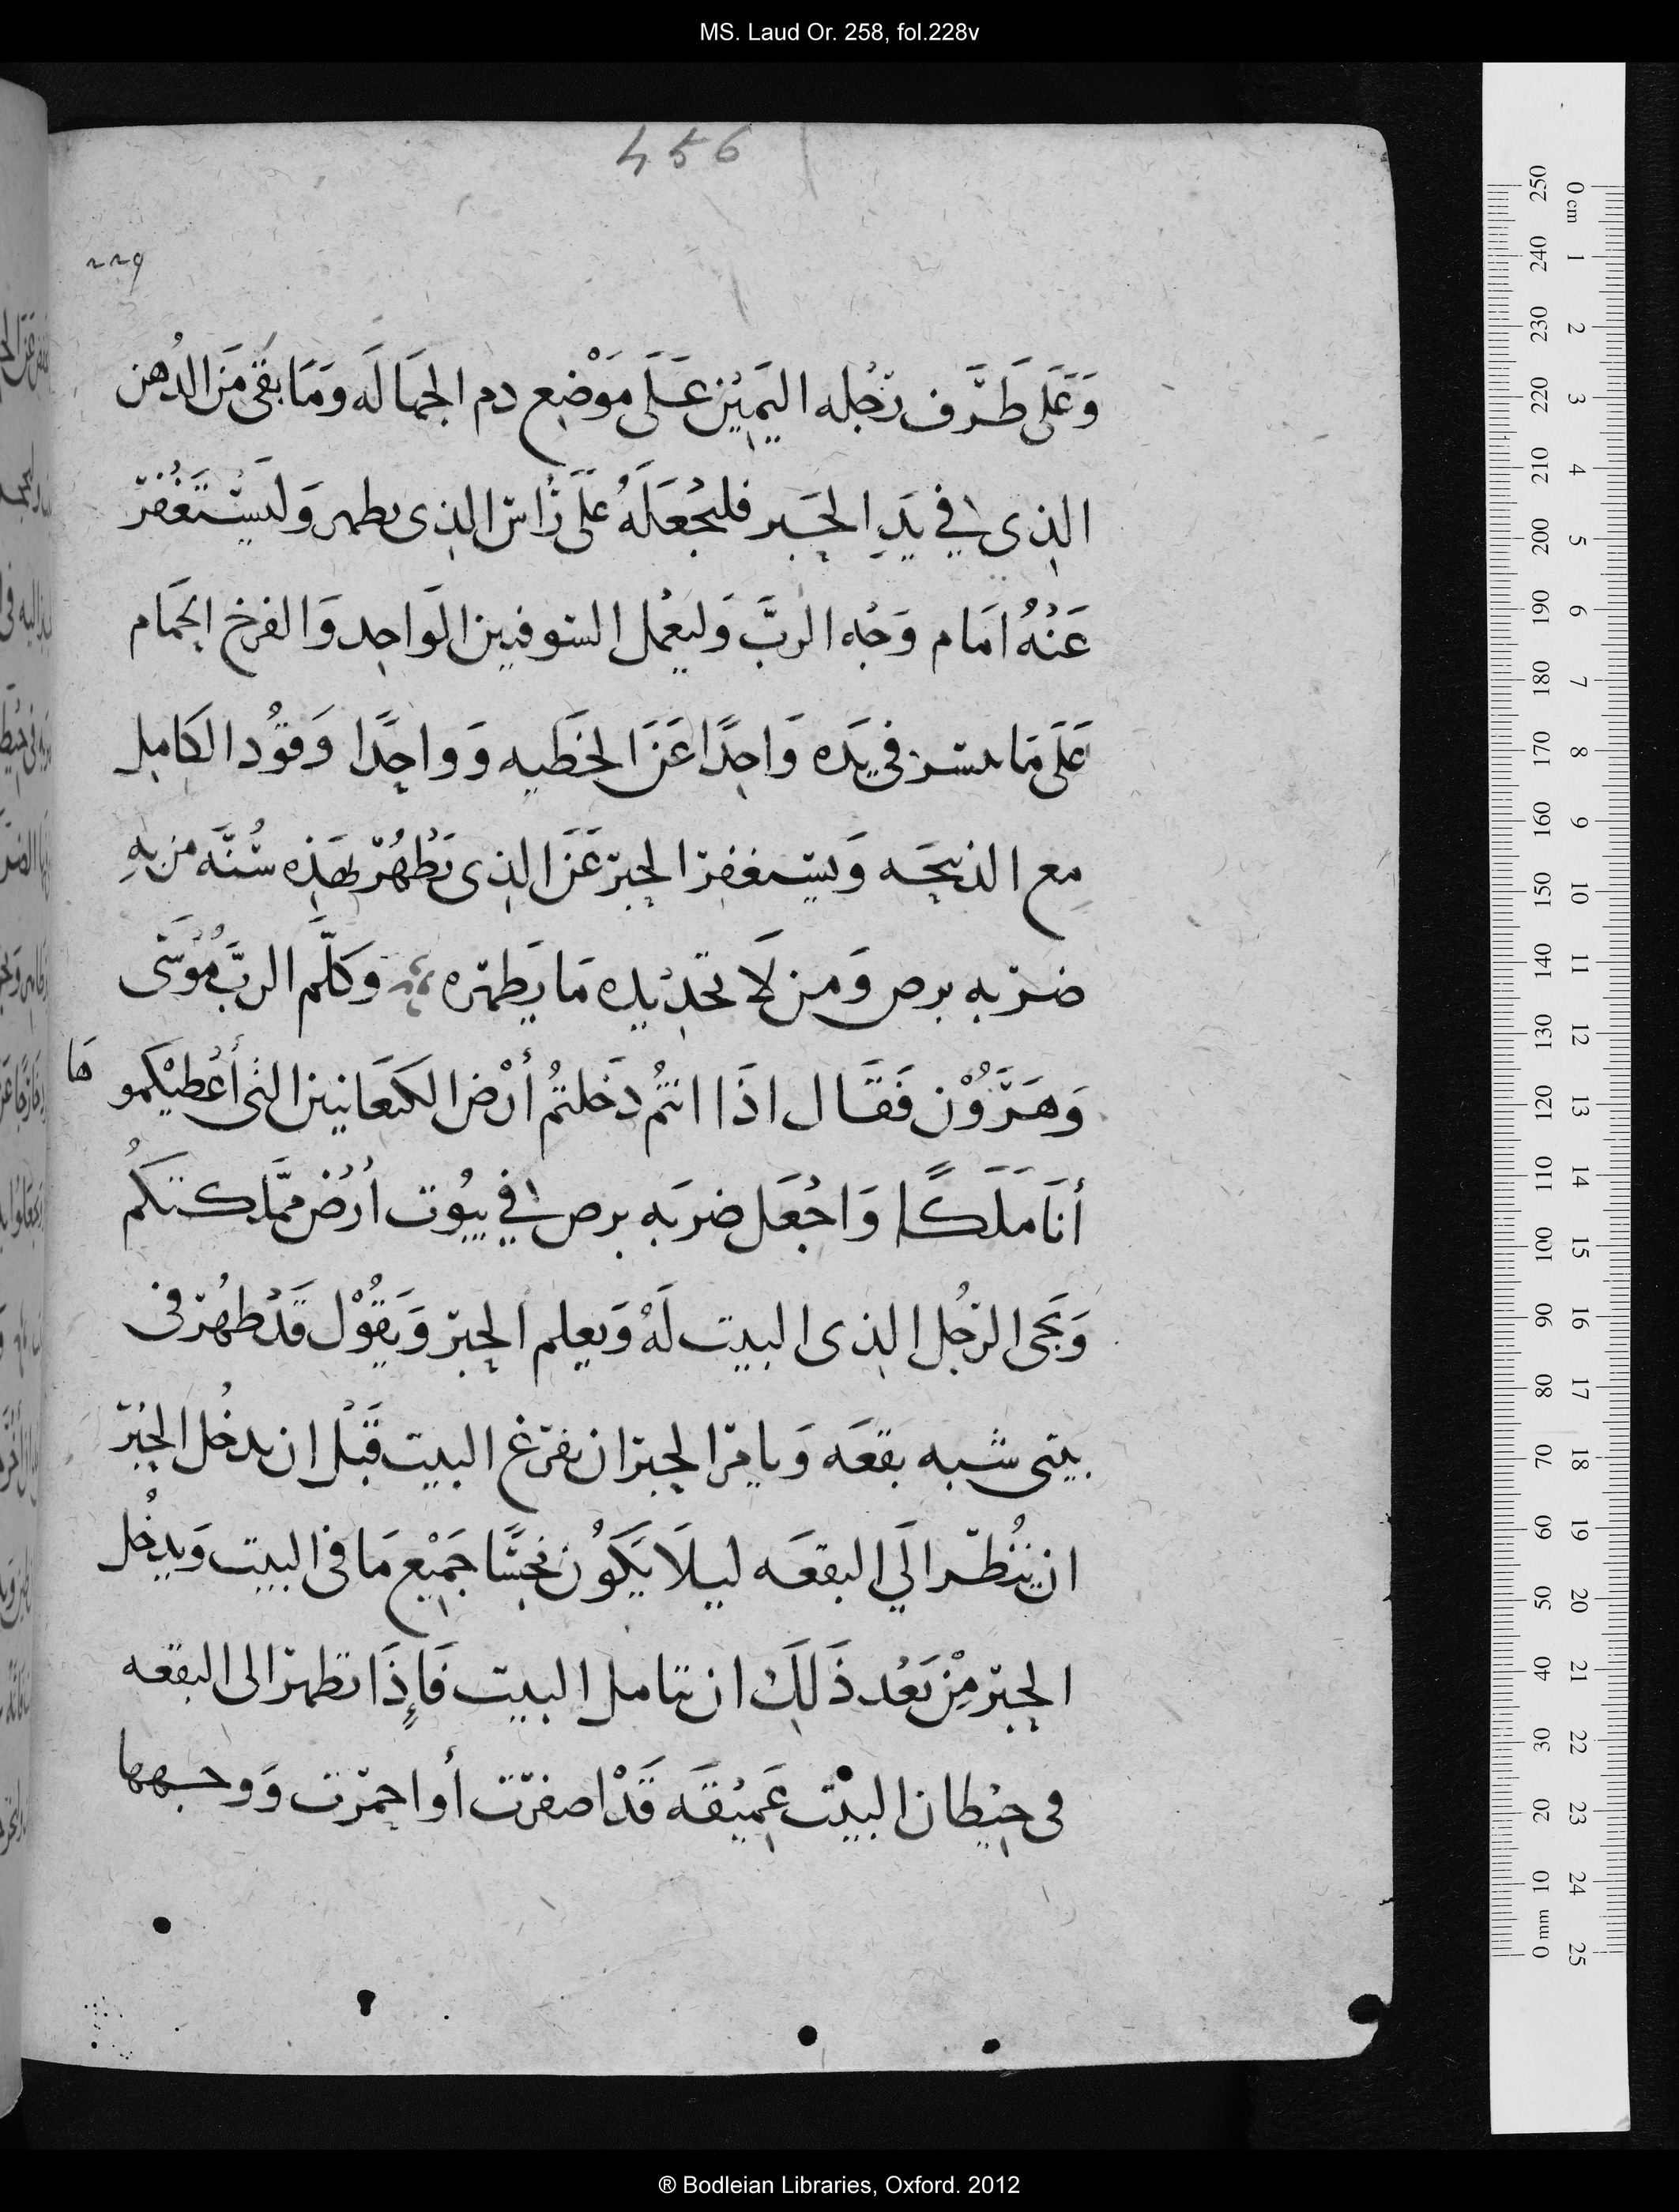 MS. Laud Or. 258, fol.228v
456
229
وَعَلَى طَرَف رجُله اليَمِيْن عَلَى مَوْضِع دم الجمَالَه وَمَا بقَى مَن الدُهن
الذِى فِي يَدِ الحَبر فليجْعَلَهُ عَلَى رَأس الذِى يطهر وَليَسْتَغْفرْ
عَنْهُ امَام وَجْه الربَّ وَليَعْمل الشوفنين الوَاحِد وَالفرخ الحَمَام
عَلَى مَا يتسر فى يَدَه وَاحِدًا عَن الخَطيه وَواحِدًا وَقوُد الكَامِل
مع الذبيحَه وَيستغفر الحِبر عَن الذِى تَطْهُرْ بهَذِه سُنَّه من بهِ
ضرْبه برص وَمن لَا تجد يَده مَا يَطهره وَكلَّم الربُّ مُوْسَى
وَهَرَوُن فَقَال اذَا انتُم دَخَلتُم أرْض الكَنعَانيين التى أعْطيْكمو هَا
أنَا مَلكًا وَاجْعَل ضربَه برص فِي بيُوت ارْض ممَلكتكُم
وَيَجى الرَجُل الذِى البيت لَهُ وَيعلم الحِبر وَيَقُوْل قَدْ ظهرْ فى
بيتى شبه بقعَه وَيامر الحِبر ان يفرغ البيت قَبْل ان يدخُل الحِبْر
ان يَنْظر الَي البقعَه ليلَا يَكوُن نجسًا جَميْع مَا فى البيت وَيدخُل
الحِبر مِنْ بَعْد ذَلِكَ ان يتامل البيت فَإِذَا نظر الى البقعه
فى حِيْطان البيْت عَمِيْقَه قَدْ اصفرت أو احمرت وَوجهها
0 cm 1 2 3 4 5 6 7 8 9 10 11 12 13 14 15 16 17 18 19 20 21 22 23 24 25
250 240 230 220 210 200 190 180 170 160 150 140 130 120 110 100 90 80 70 60 50 40 30 20 10 0 mm
® Bodleian Libraries, Oxford. 2012